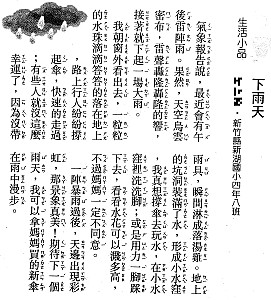 生活小品
下雨天
新竹縣新湖國小四年八班
氣象報告說，最近會有午
後雷陣雨。果然，天空烏雲
密布，雷聲轟隆轟隆的響，
接著就下起一場大雨。
我朝窗外看出去，一粒粒
的水珠滴滴答答的落在地上
，路上行人紛紛撐
起傘，快速的走過
；有些人就沒這麼
幸運了，因為沒帶
雨具，瞬間淋成落湯雞。地上
的坑洞裝滿了水，形成小水窪
，我真想撐傘去玩水，在小水
窪裡洗洗腳；或是用力一腳踩
下去，看看水花可以濺多高，
不過媽媽一定不同意。
一陣暴雨過後，天邊出現彩
虹，那景象真美！期待下一個
雨天，我可以拿媽媽買的新傘
在雨中漫步。